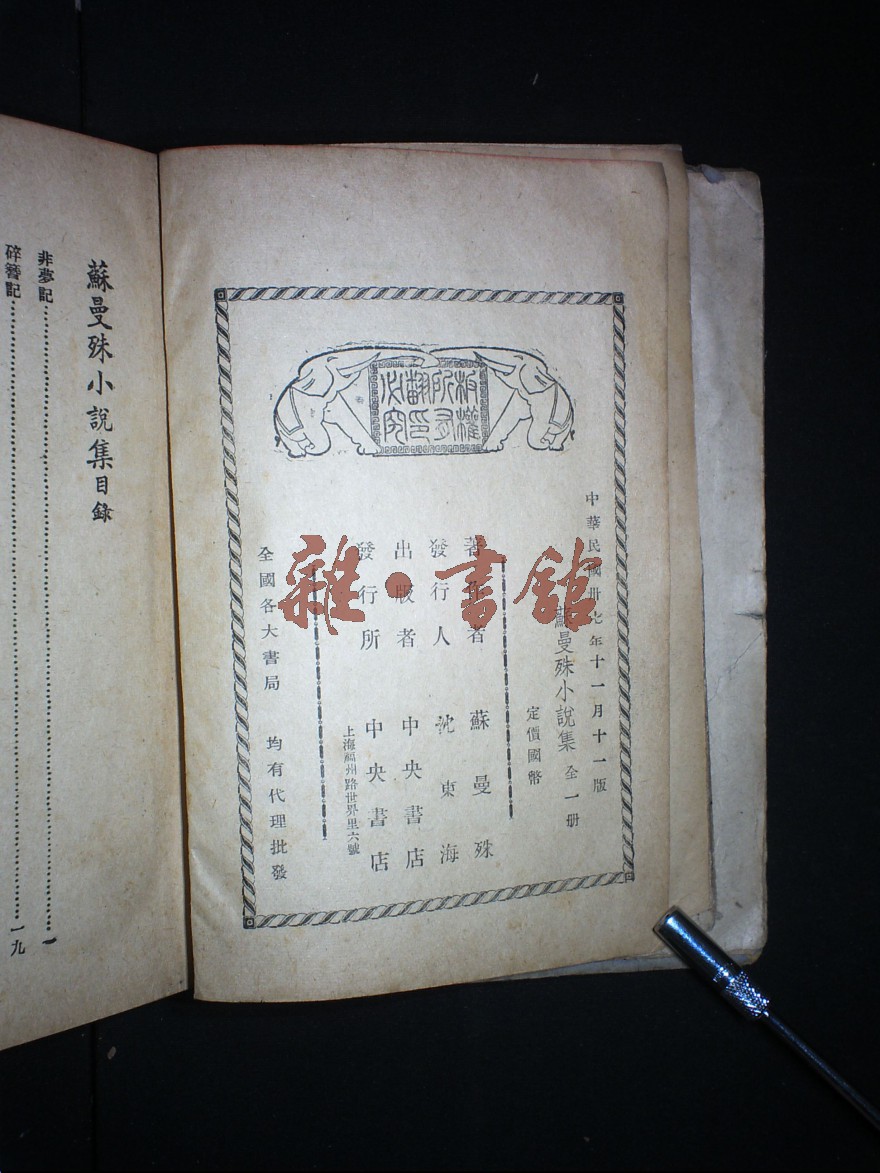 板權
所有
翻印
必究
中華民國卅七年十一月十一版
蘇曼殊小說集 全一册
定價國幣
著作者 蘇曼殊
發行人 沈東海
出版者 中央書店
發行所 中央書店
上海福州路世界里六號
全國各大書局 均有代理批發
蘇曼殊小說集目錄
非夢記 一
碎簪記 一九
雜·書館